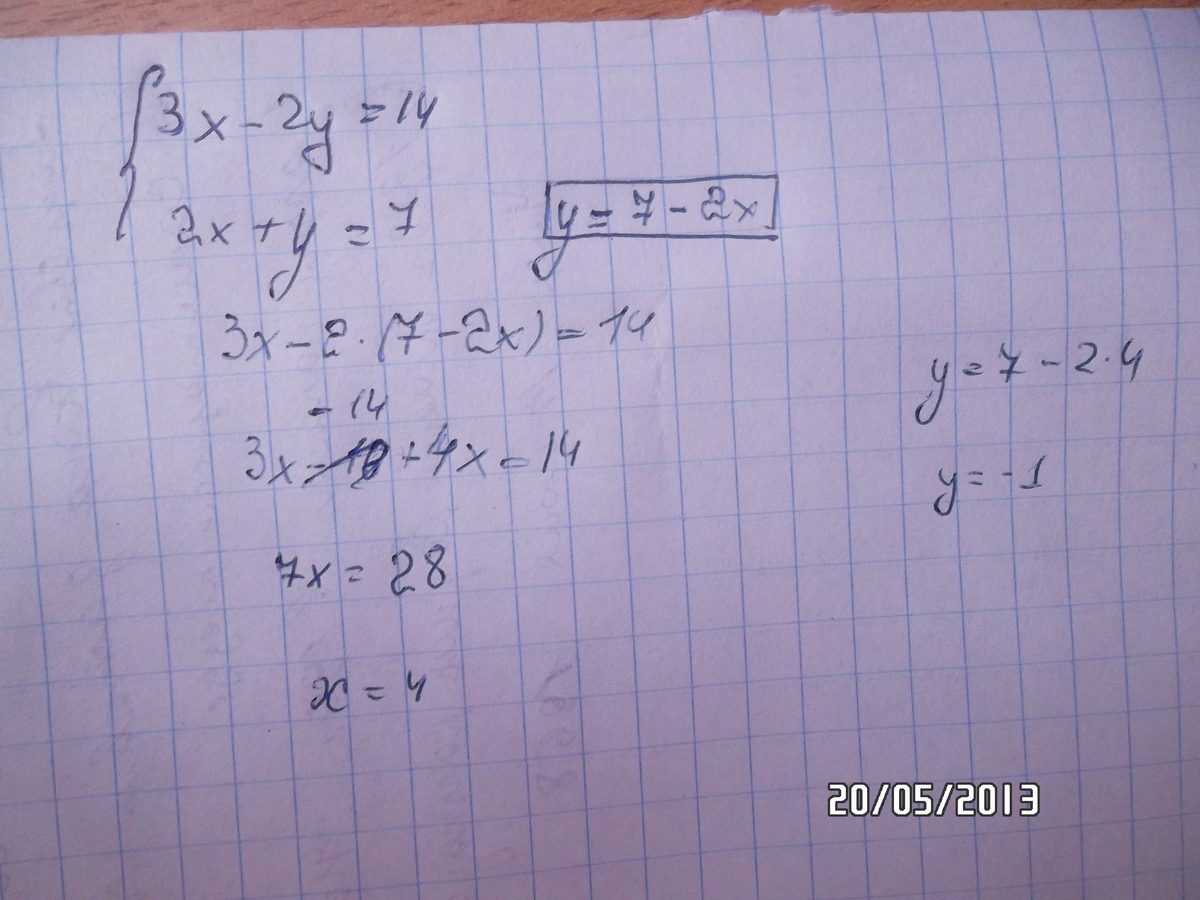 3x - 2y = 14
2x + y = 7
y = 7 - 2x
3x - 2 · (7 - 2x) = 14
- 14
3x + 4x = 14
7x = 28
x = 4
y = 7 - 2 · 4
y = -1
20/05/2013